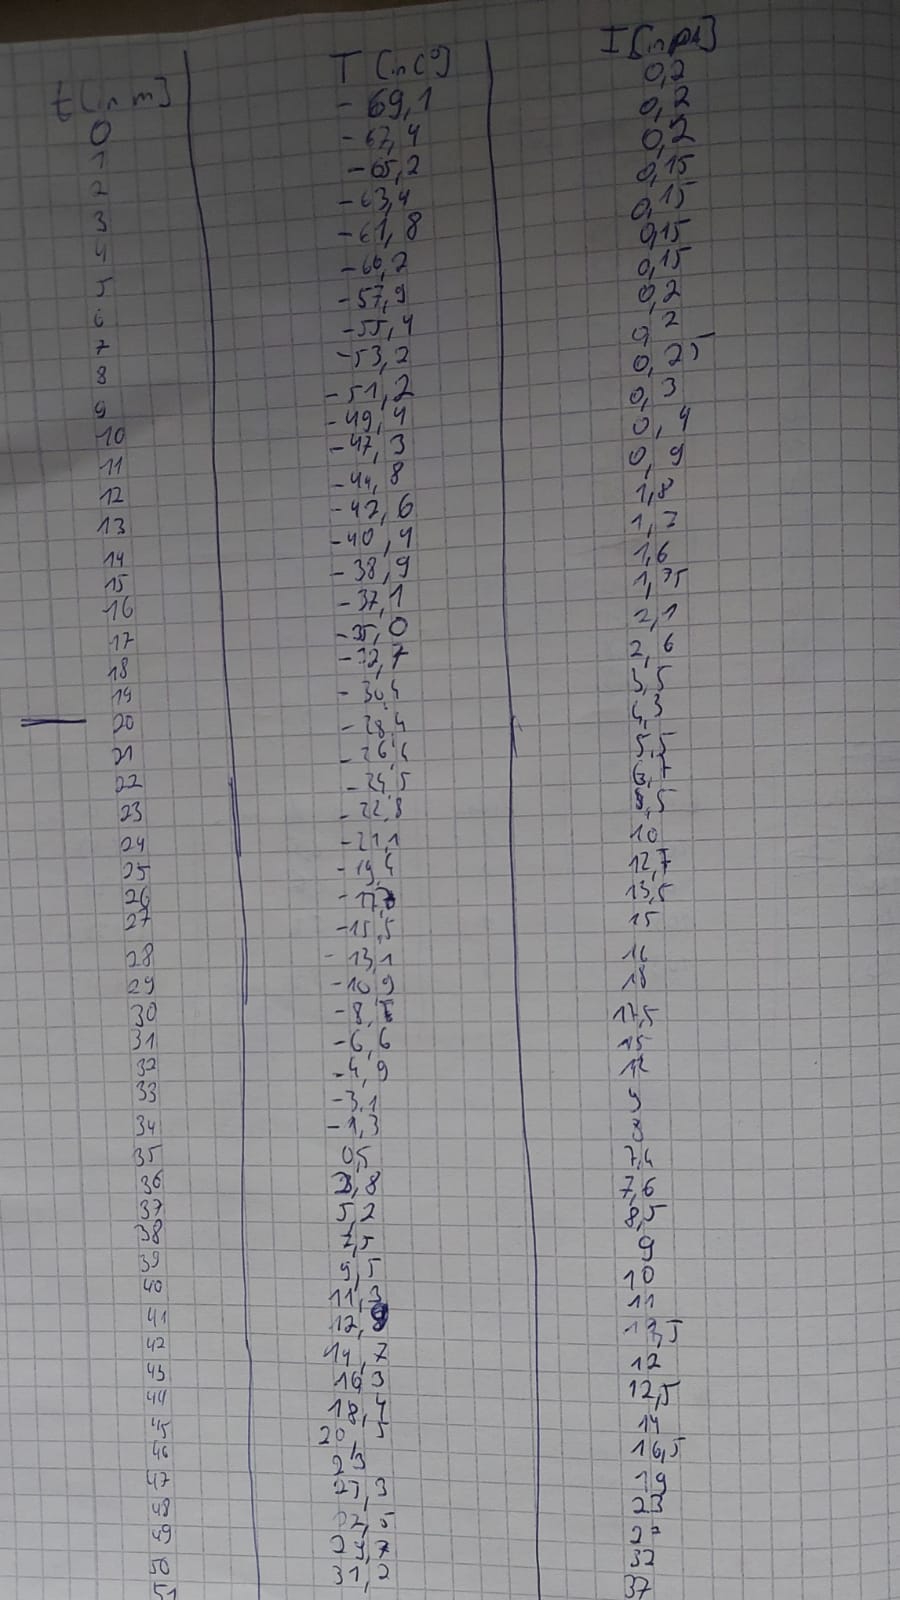 t [in m] T [in C°] I [in pA]
0 -69,1 0,2
1 -67,4 0,2
2 -65,2 0,2
3 -63,4 0,15
4 -61,8 0,15
5 -60,2 0,15
6 -57,9 0,15
7 -55,4 0,2
8 -53,2 0,2
9 -51,2 0,25
10 -49,4 0,3
11 -47,3 0,4
12 -44,8 0,9
13 -42,6 1,8
14 -40,4 1,7
15 -38,9 1,6
16 -37,1 1,75
17 -35,0 2,1
18 -32,7 2,6
19 -30,4 5,5
20 -28,4 5,3
21 -26,4 5,5
22 -24,5 6,7
23 -22,8 8,5
24 -21,1 10
25 -19,4 12,7
26 13,5
27 -15,5 15
28 -13,1 16
29 -10,9 18
30 17,5
31 -6,6 15
32 -4,9 12
33 -3,1 9
34 -1,3 8
35 0,5 7,4
36 7,6
37 5,2 8,5
38 7,5 9
39 9,5 10
40 11,3 11
41 11,5
42 14,7 12
43 16,3 12,5
44 18,4 14
45 20,5 16,5
46 23 19
47 25,3 23
48
49 32
50 31,2 37
51